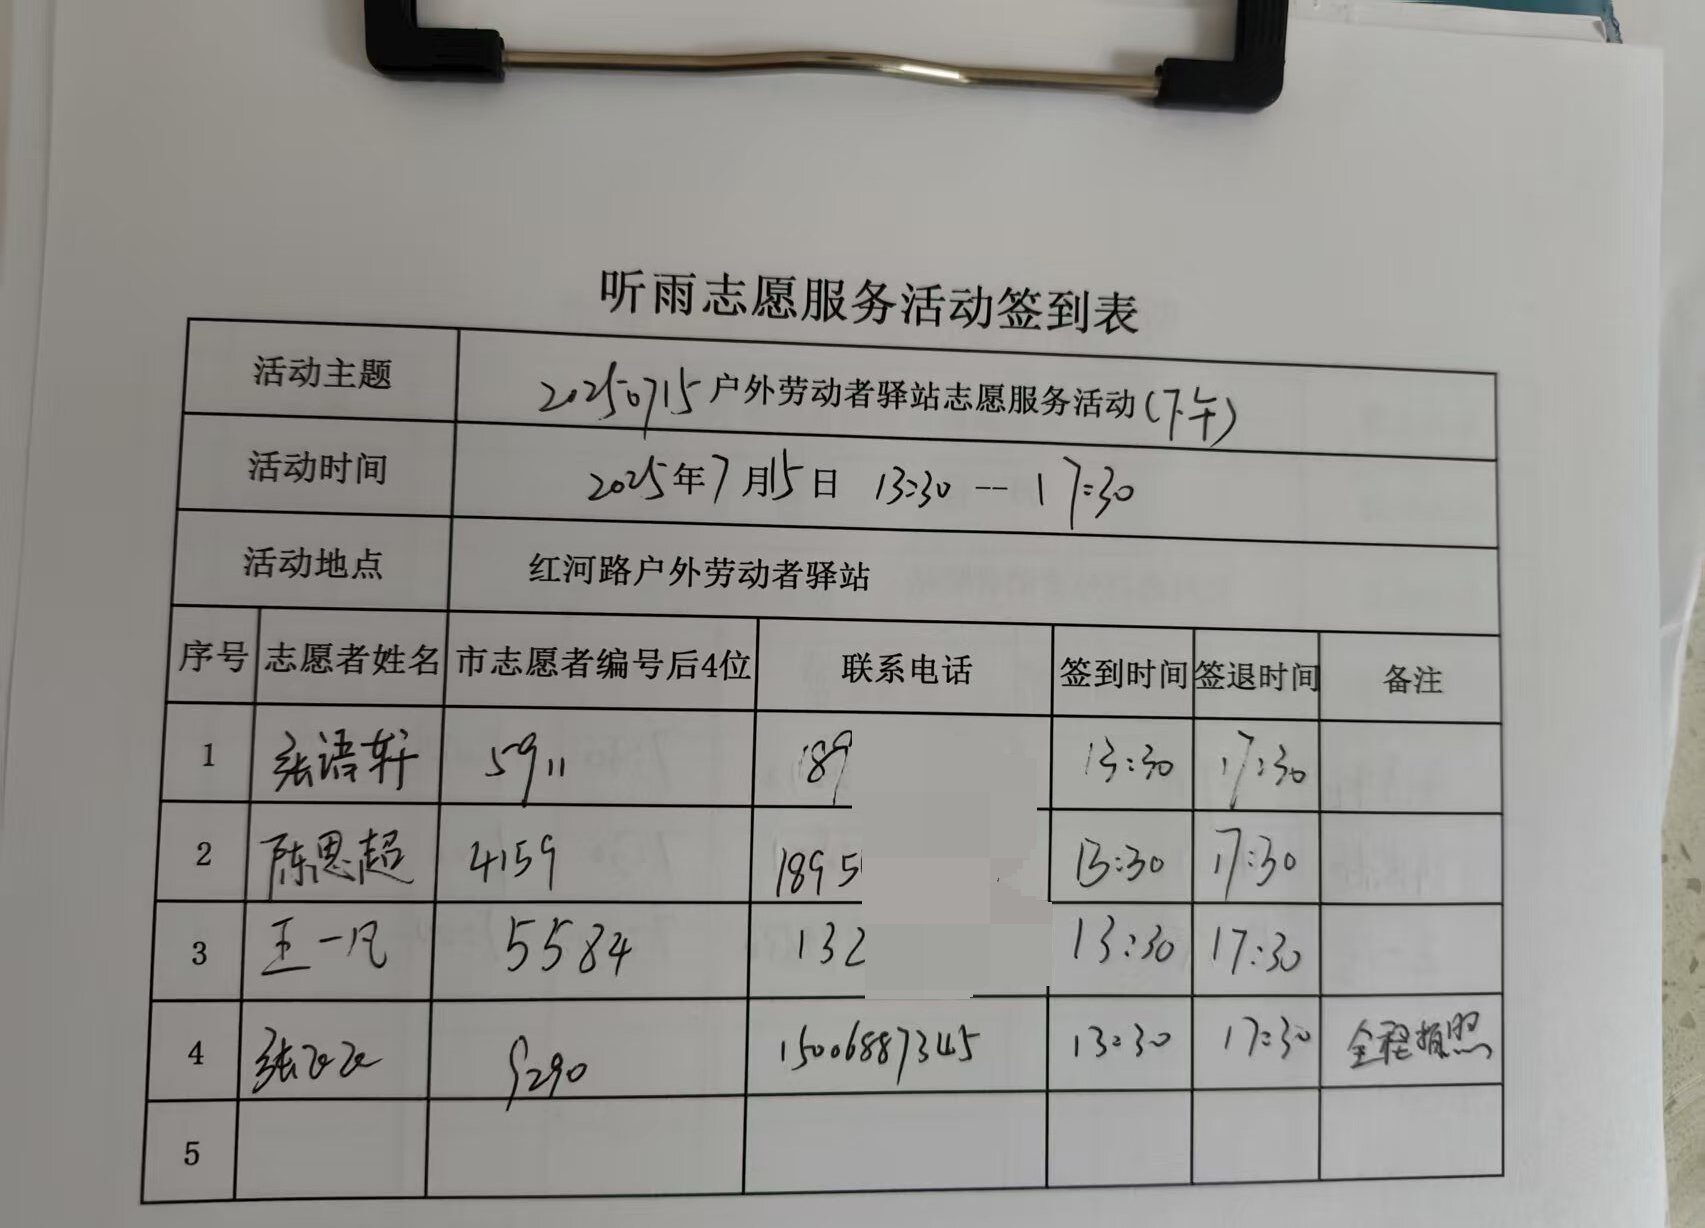 听雨志愿服务活动签到表
活动主题 20250715户外劳动者驿站志愿服务活动(下午)
活动时间 2025年7月15日 13:30--17:30
活动地点 红河路户外劳动者驿站
序号 志愿者姓名 市志愿者编号后4位 联系电话 签到时间 签退时间 备注
1 张语轩 5911 189 13:30 17:30
2 陈思超 4159 1895 13:30 17:30
3 王一凡 5584 132 13:30 17:30
4 张 9290 15006887345 13:30 17:30 全程拍照
5